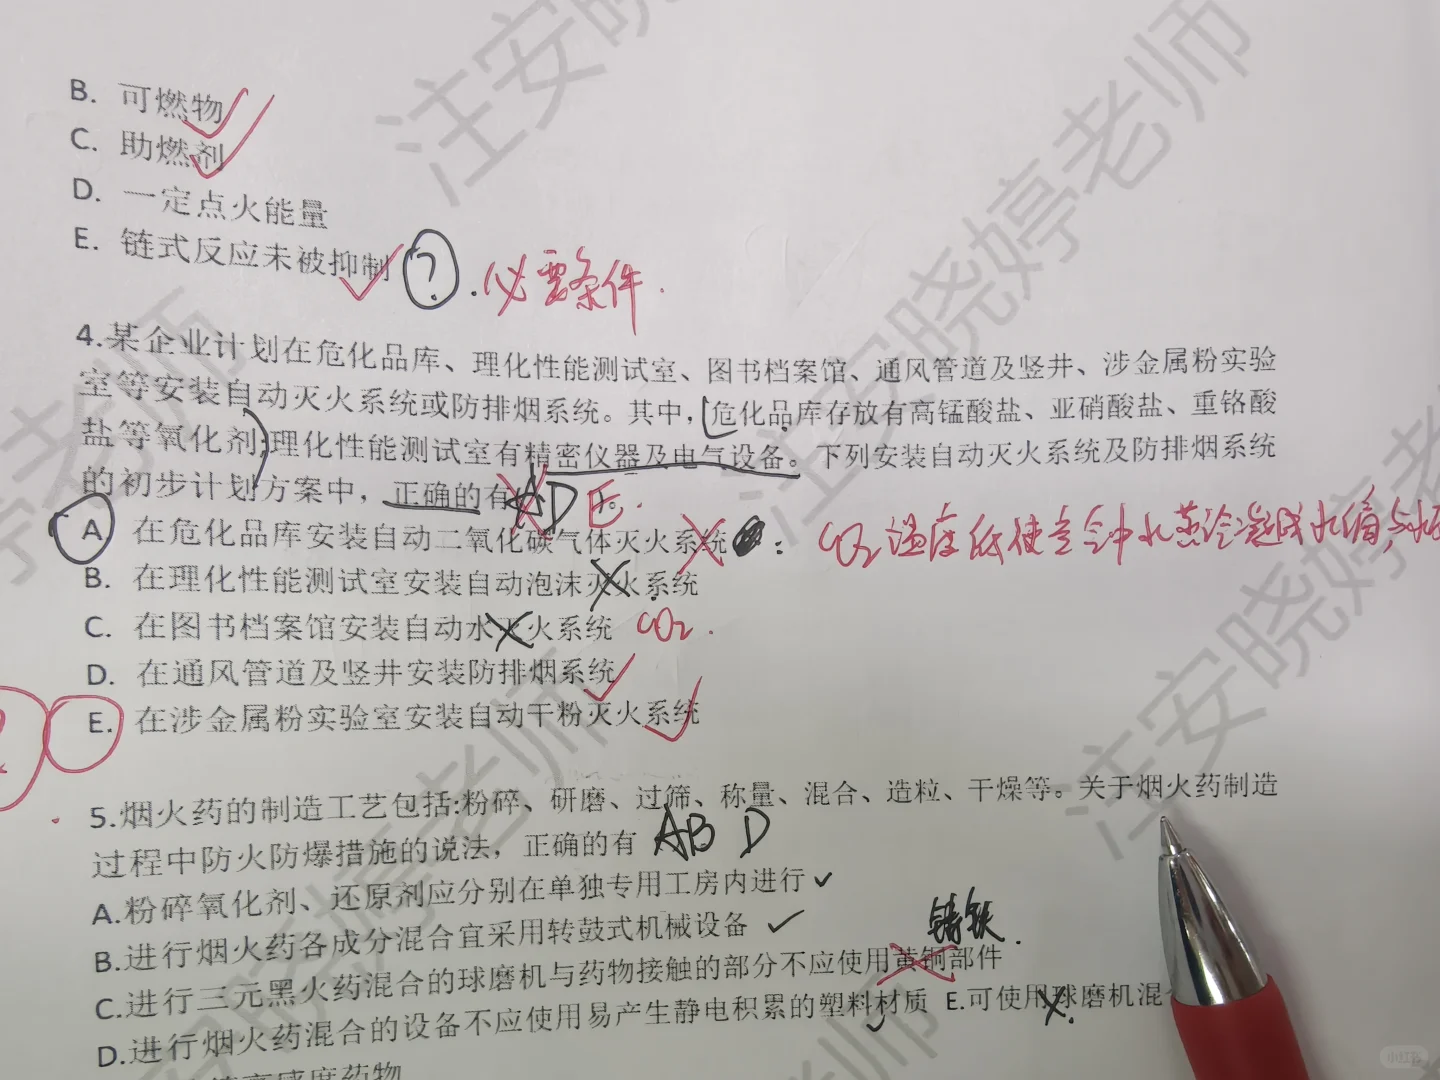 B. 可燃物
C. 助燃剂
D. 一定点火能量
E. 链式反应未被抑制 ? . 必要条件.
4.某企业计划在危化品库、理化性能测试室、图书档案馆、通风管道及竖井、涉金属粉实验
室等安装自动灭火系统或防排烟系统。其中,危化品库存放有高锰酸盐、亚硝酸盐、重铬酸
盐等氧化剂;理化性能测试室有精密仪器及电气设备。下列安装自动灭火系统及防排烟系统
的初步计划方案中，正确的有 AD E.
A 在危化品库安装自动二氧化碳气体灭火系统 : CO2温度低使空气中水蒸冷凝成水滴,与水
B. 在理化性能测试室安装自动泡沫灭火系统
C. 在图书档案馆安装自动水灭火系统 CO2.
D. 在通风管道及竖井安装防排烟系统
E. 在涉金属粉实验室安装自动干粉灭火系统
5.烟火药的制造工艺包括:粉碎、研磨、过筛、称量、混合、造粒、干燥等。关于烟火药制造
过程中防火防爆措施的说法，正确的有 AB D
A.粉碎氧化剂、还原剂应分别在单独专用工房内进行
B.进行烟火药各成分混合宜采用转鼓式机械设备
铸铁.
C.进行三元黑火药混合的球磨机与药物接触的部分不应使用黄铜部件
D.进行烟火药混合的设备不应使用易产生静电积累的塑料材质 E.可使用球磨机混
药物
注安晓婷老师
注安晓婷老师
注安晓婷老师
小红书